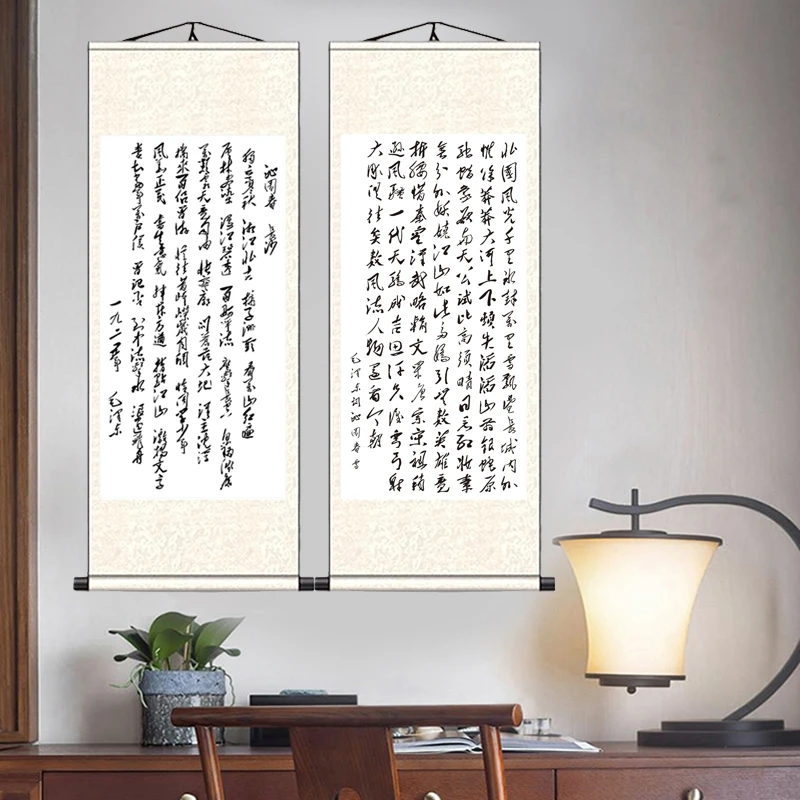 沁园春 长沙
独立寒秋 湘江北去 橘子洲头 看万山红遍
层林尽染 漫江碧透 百舸争流 鹰击长空 鱼翔浅底
万类霜天竞自由 怅寥廓 问苍茫大地 谁主沉浮
携来百侣曾游 忆往昔峥嵘岁月稠 恰同学少年
风华正茂 书生意气 挥斥方遒 指点江山 激扬文字
粪土当年万户侯 曾记否 到中流击水 浪遏飞舟
一九二五年 毛泽东
北国风光千里冰封万里雪飘望长城内外
惟余莽莽大河上下顿失滔滔山舞银蛇原
驰蜡象欲与天公试比高须晴日看红妆素
裹分外妖娆江山如此多娇引无数英雄竞
折腰惜秦皇汉武略输文采唐宗宋祖稍
逊风骚一代天骄成吉思汗只识弯弓射
大雕俱往矣数风流人物还看今朝
毛泽东词沁园春雪